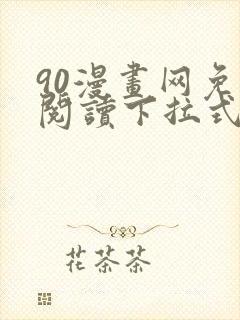 90漫畫网免
閱讀下拉式
花茶茶